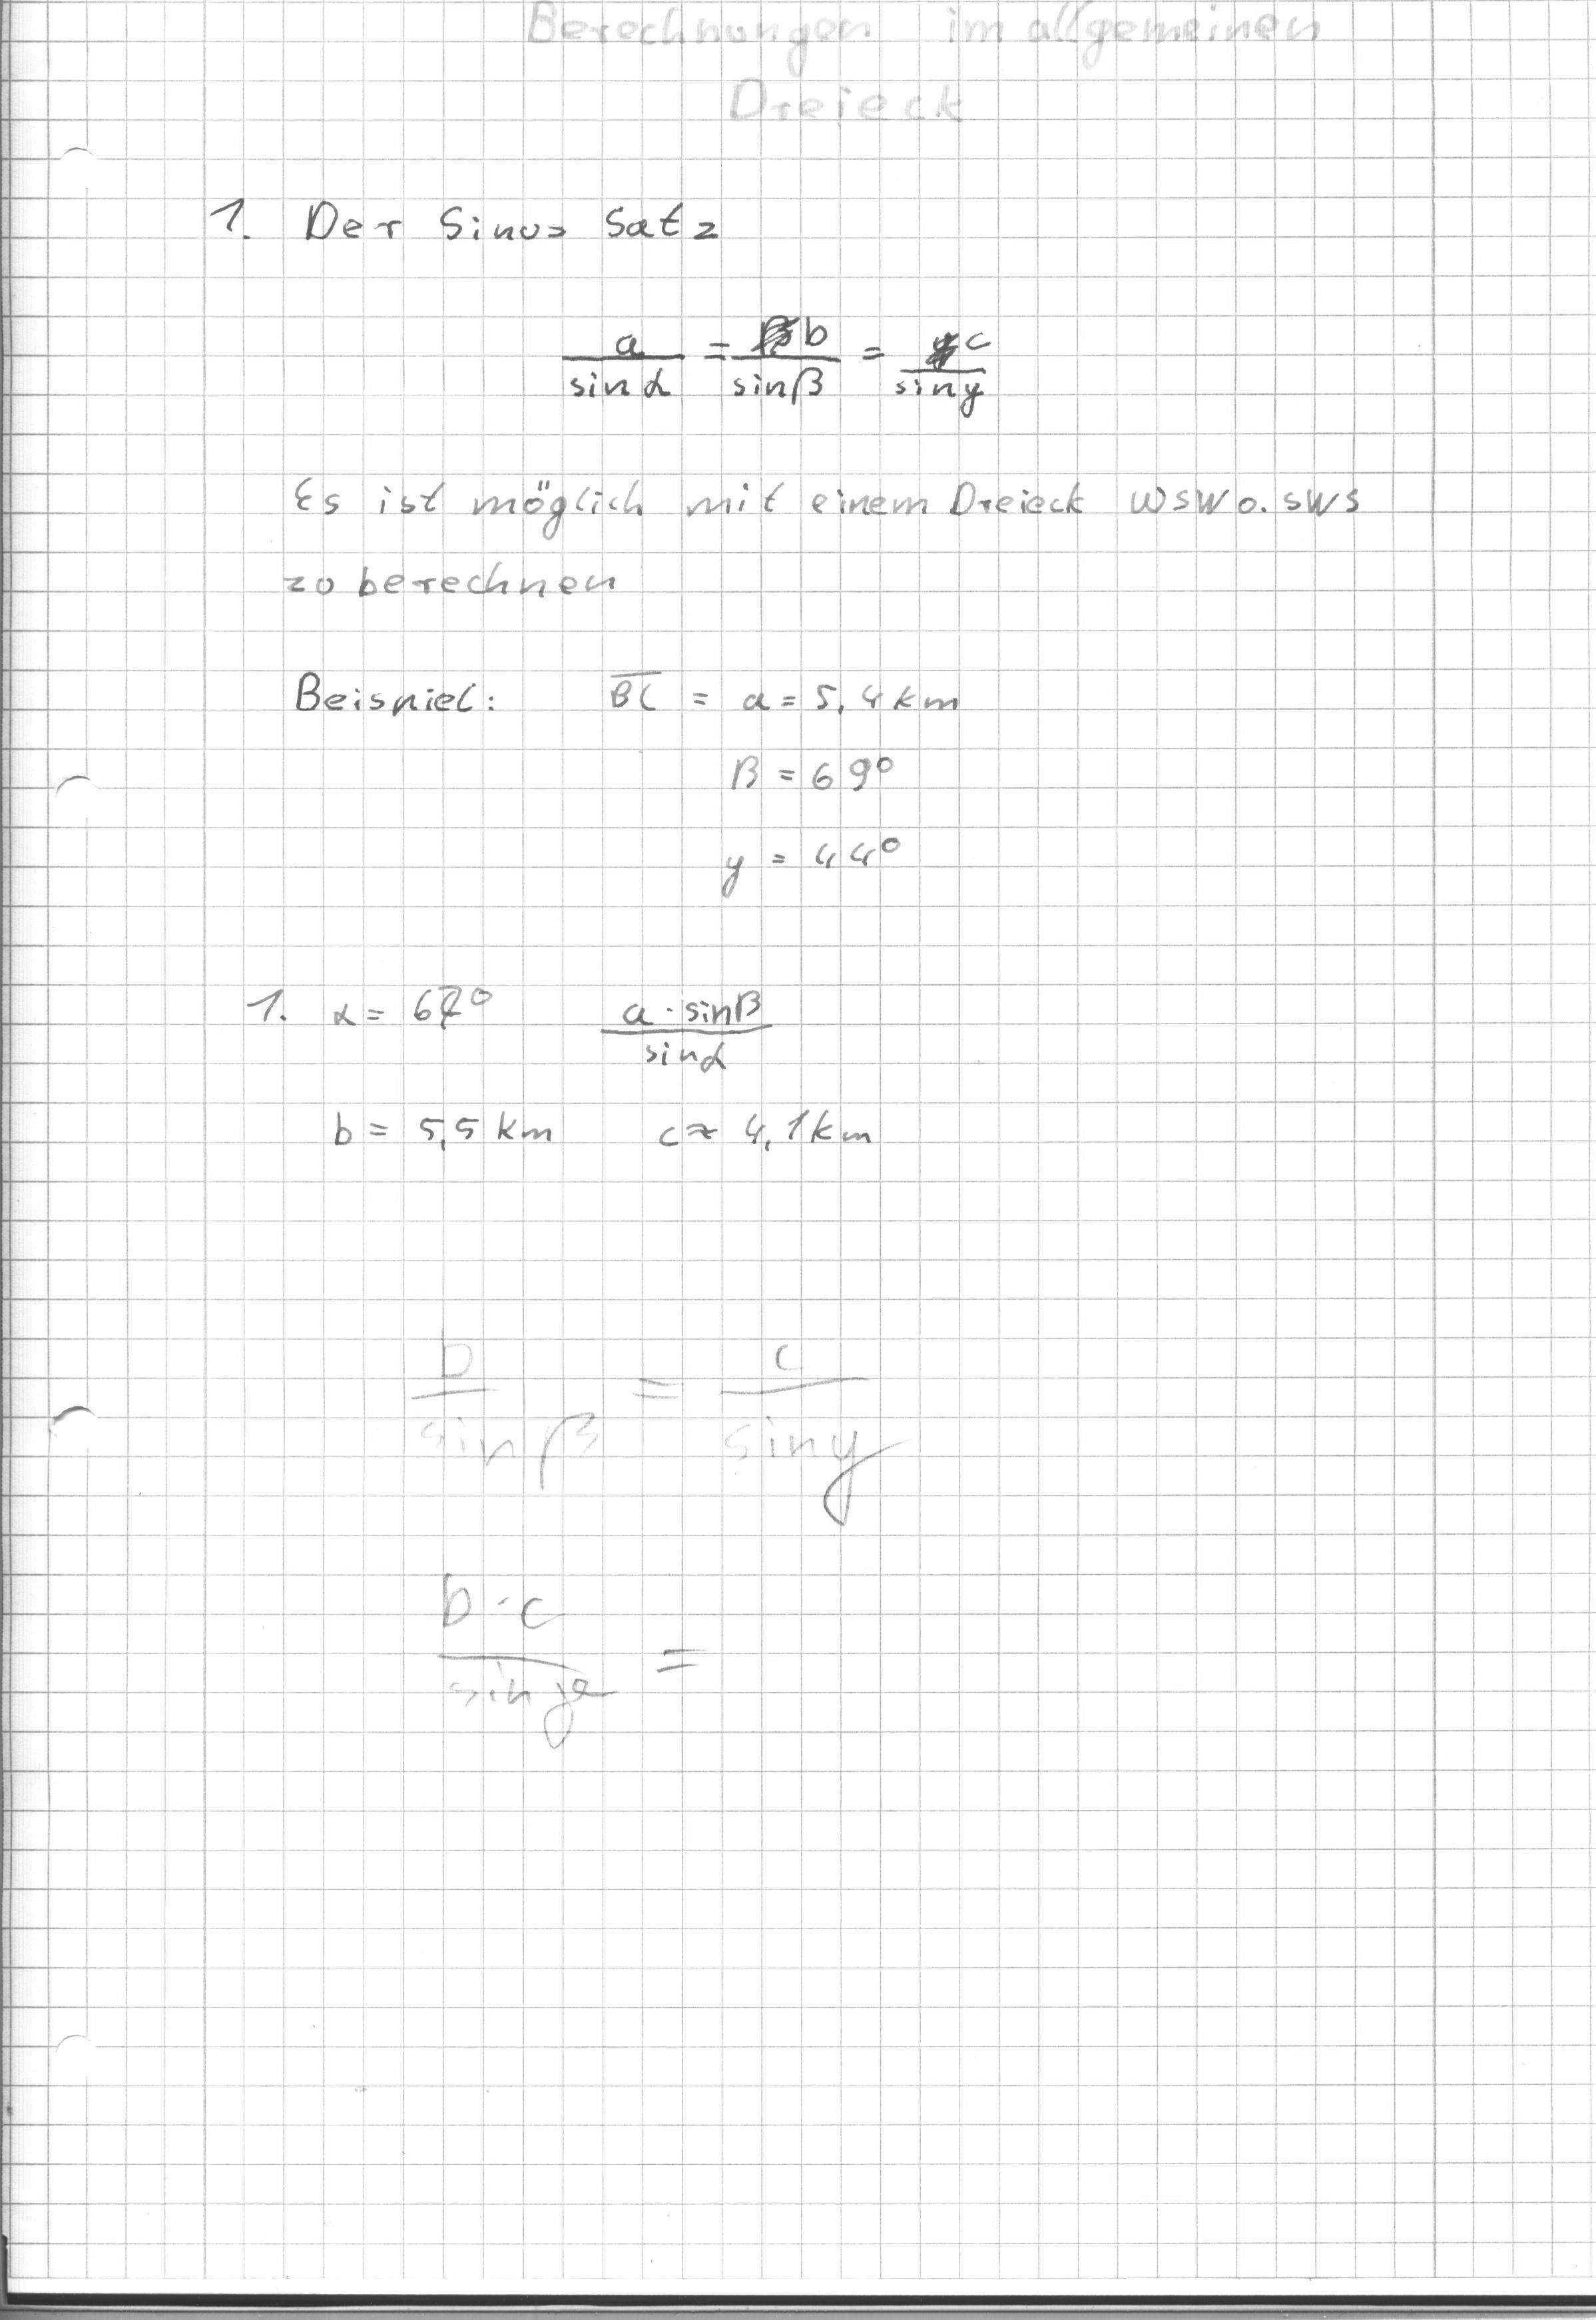 Berechnungen im allgemeinen
Dreieck
1. Der Sinus Satz
a/sin α = b/sin β = c/sin y
Es ist möglich mit einem Dreieck WSW o. SWS
zu berechnen
Beispiel: BC = a = 5,4 km
β = 69°
y = 44°
1. α = 67° a · sin β / sin α
b = 5,5 km c ≈ 4,1 km
b/sin β = c/sin y
b · c / sin =